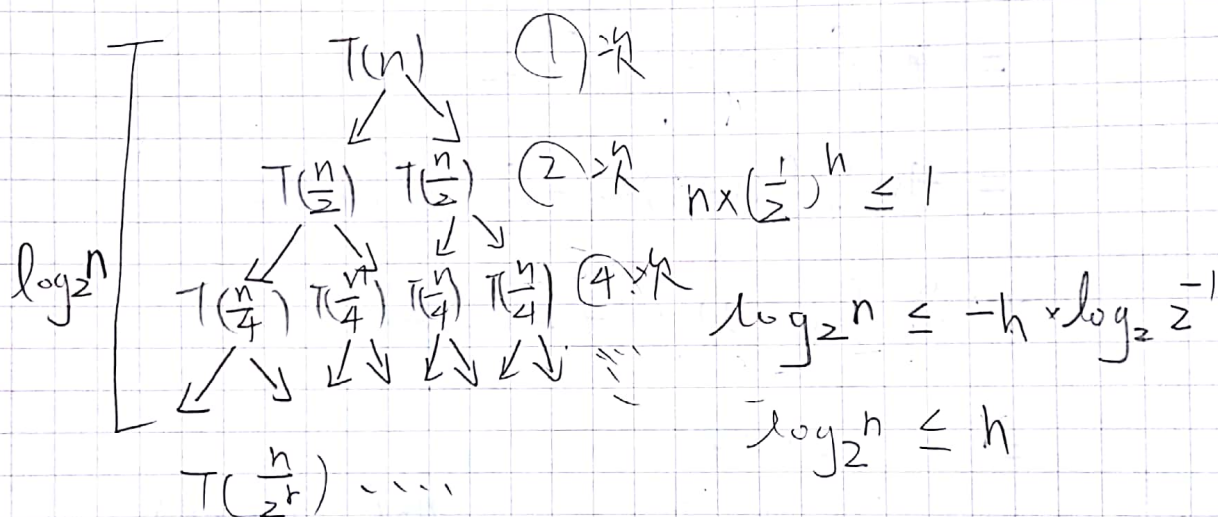 T(n) ①次
T(n/2) T(n/2) ②次
n×(1/2)^h ≤ 1
log₂n
T(n/4) T(n/4) T(n/4) T(n/4) ④次
log₂n ≤ -h×log₂2⁻¹
log₂n ≤ h
T(n/2^r) ....